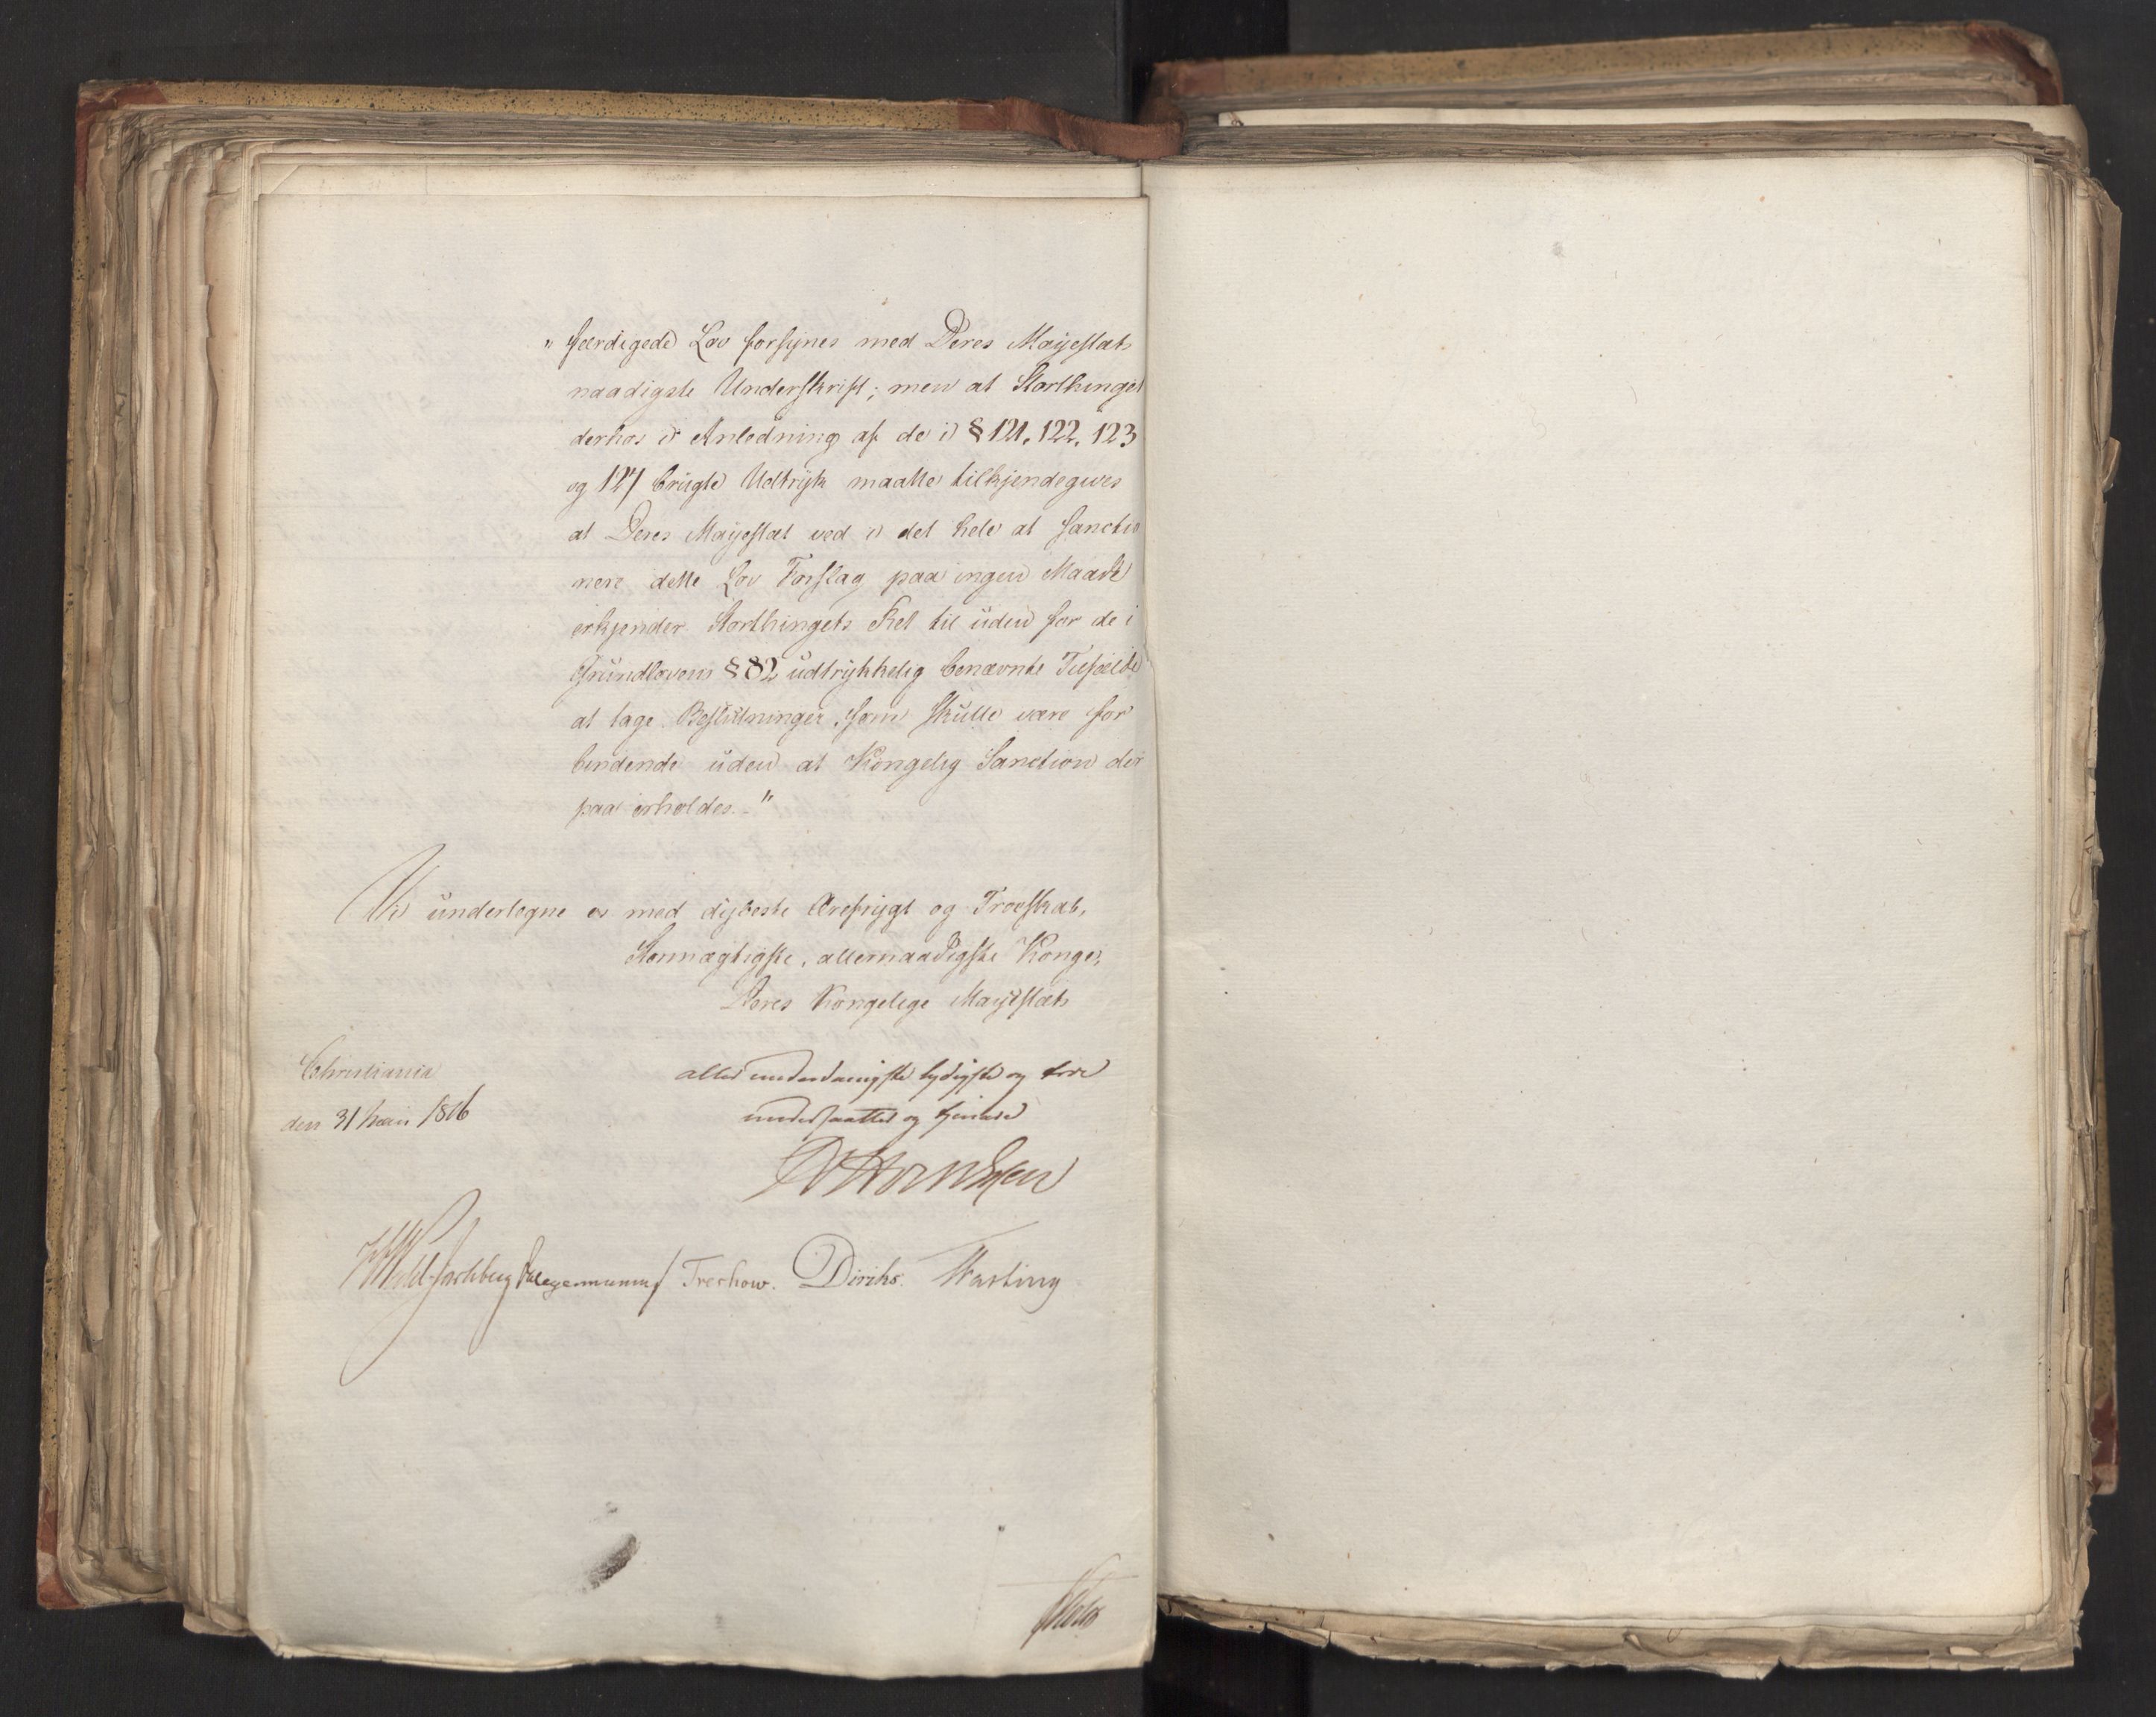 " færdigede Lov forsynes med Deres Majestæts
naadigste Underskrift; men at Storthinget
derhos i Anledning af de i § 121. 122. 123
og 127 brugte Udtryk maatte tilkjendegives
at Deres Majestæt ved i det hele at sanctio
nere dette Lov Forslag paa ingen Maade
erkjender Storthingets Ret til uden for de i
Grundlovens § 82 udtrykkelig benævnte Tilfælde
at tage Beslutninger, som skulle være for
bindende uden at Kongelig Sanction der
paa erholdes. "
Vi undertegne os med dybeste Ærefrygt og Troeskab,
Stormægtigste, allernaadigste Konge,
Deres Kongelige Majestæts
Christiania
den 31 Maii 1816
allerunderdanigste lydigste og troe
undersaatter og tjenere
Sommerhielm
Trechow. Diriks. Fasting